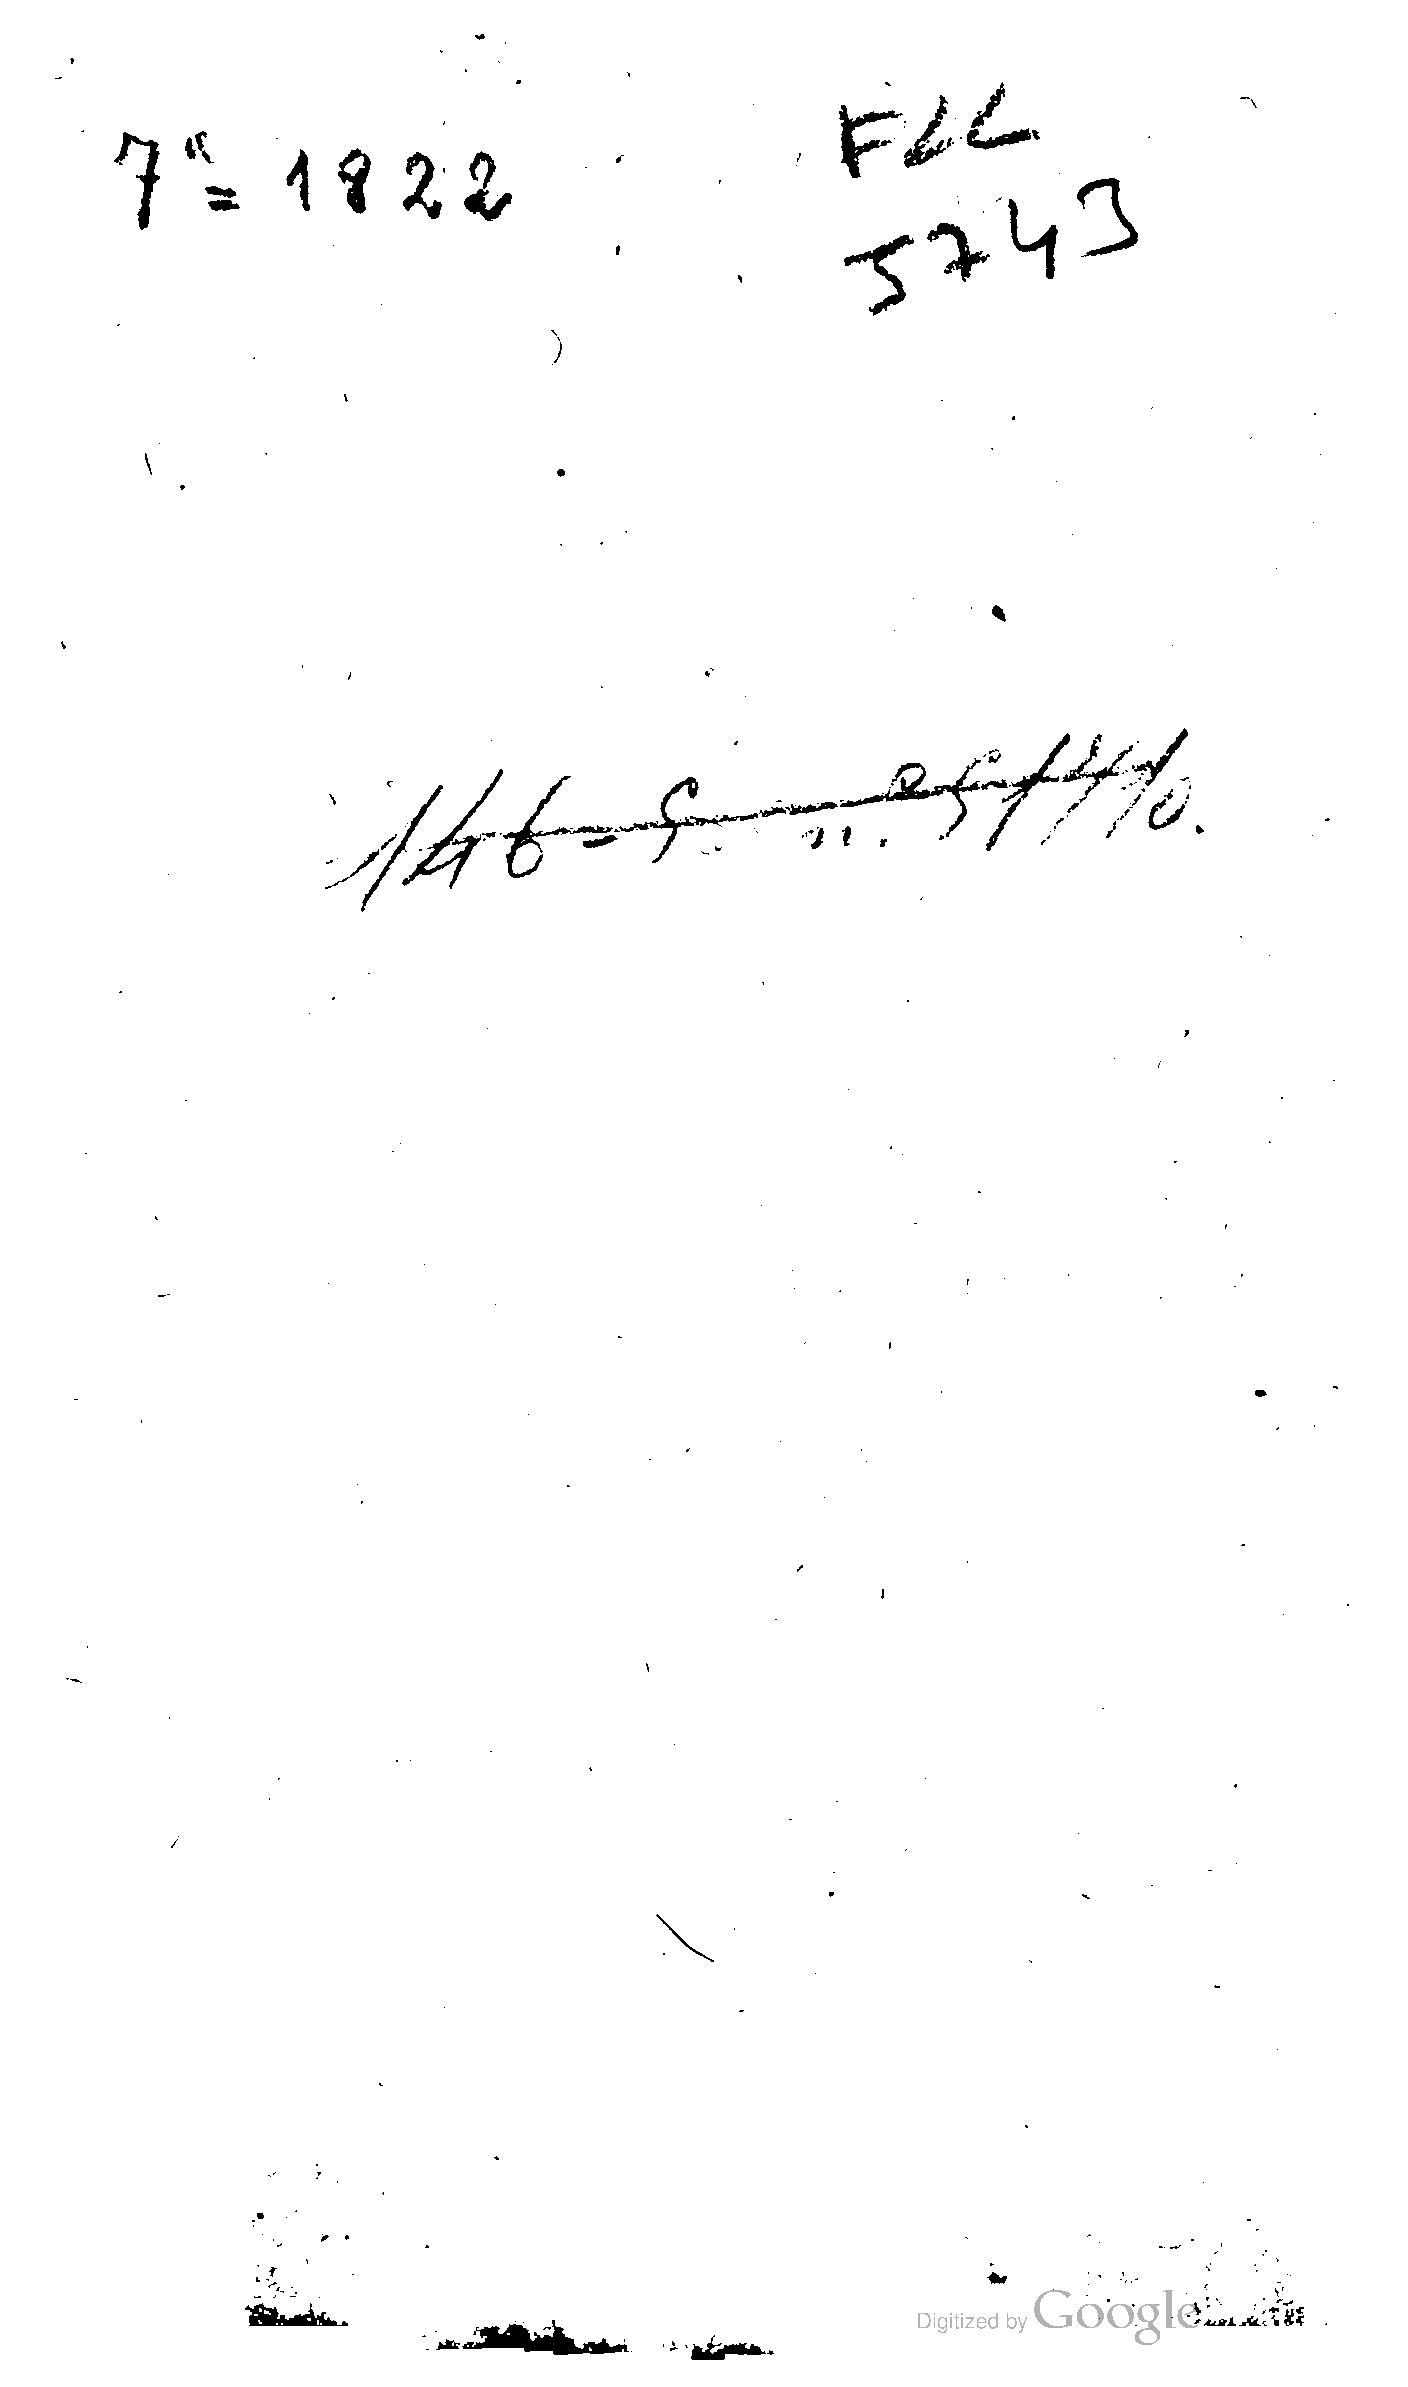 7ª = 1822
FLL
5743
146-
Digitized by Google